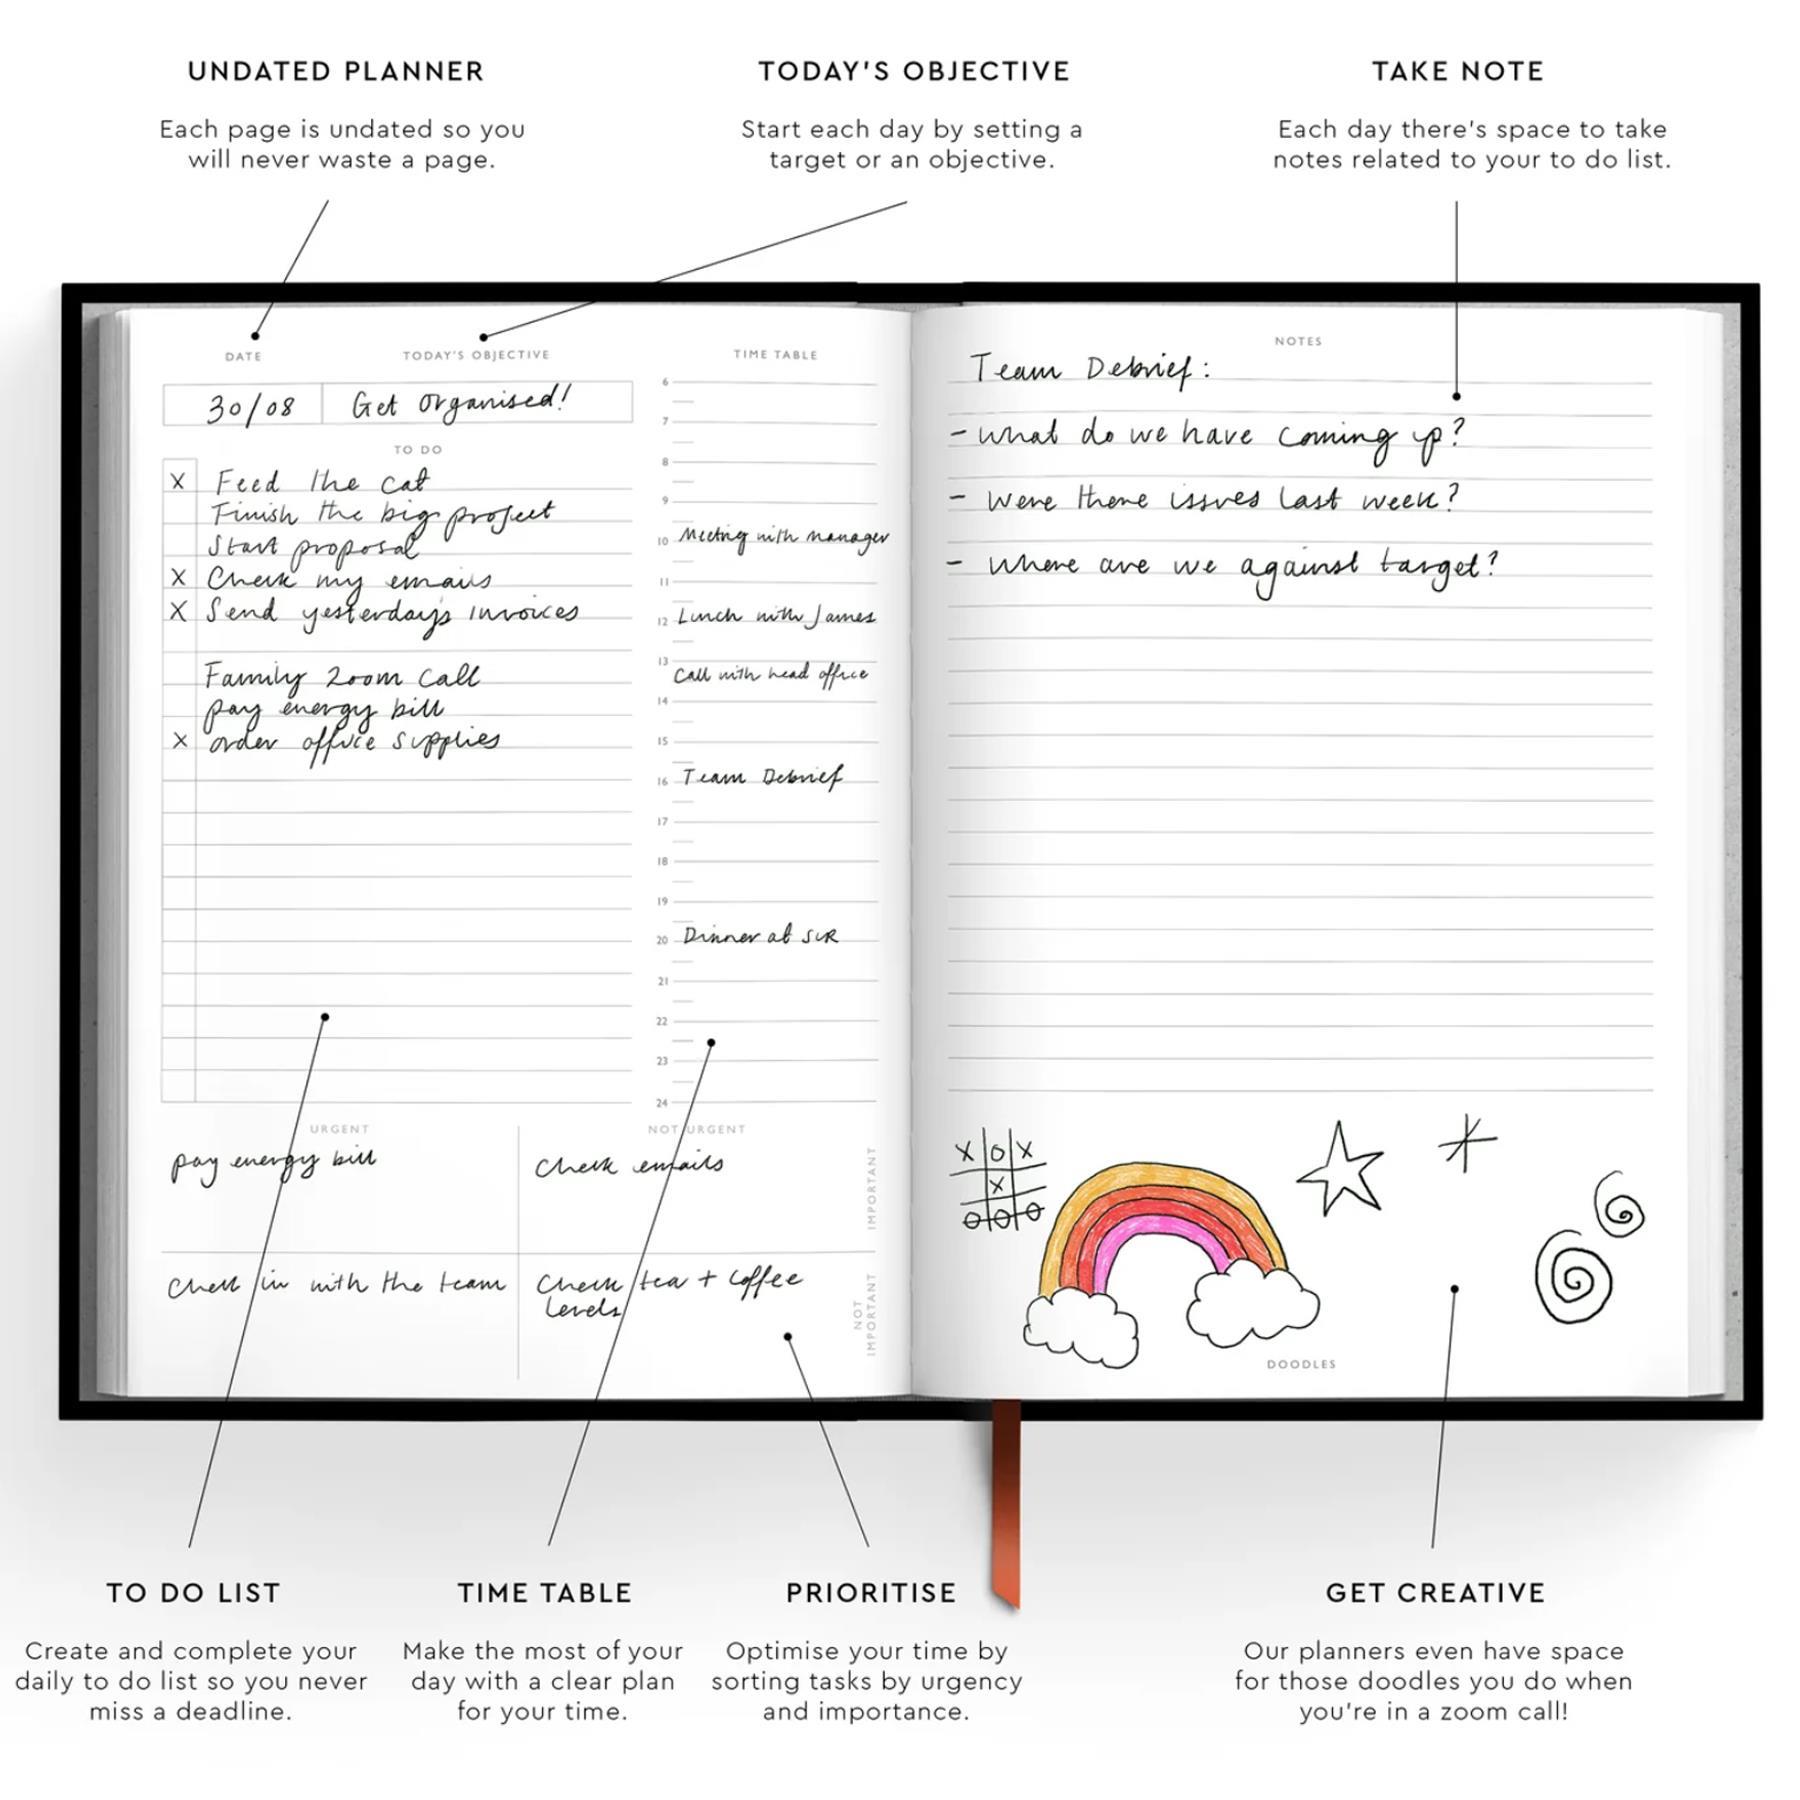 UNDATED PLANNER
Each page is undated so you
will never waste a page.
TODAY'S OBJECTIVE
Start each day by setting a
target or an objective.
TAKE NOTE
Each day there's space to take
notes related to your to do list.
DATE
TODAY'S OBJECTIVE
30/08
Get Organised!
TO DO
X Feed the cat
Finish the big project
Start proposal
X Check my emails
X Send yesterday's invoices
Family Zoom call
pay energy bill
X order office supplies
TIME TABLE
6
7
8
9
10 Meeting with manager
11
12 Lunch with James
13
Call with head office
14
15
16 Team Debrief
17
18
19
20 Dinner at SUR
21
22
23
24
URGENT
NOT URGENT
pay energy bill
Check emails
IMPORTANT
Check in with the team
Check tea + coffee
levels
NOT
IMPORTANT
NOTES
Team Debrief:
- What do we have coming up?
- Were there issues last week?
- Where are we against target?
X O X
X
O O O
DOODLES
TO DO LIST
Create and complete your
daily to do list so you never
miss a deadline.
TIME TABLE
Make the most of your
day with a clear plan
for your time.
PRIORITISE
Optimise your time by
sorting tasks by urgency
and importance.
GET CREATIVE
Our planners even have space
for those doodles you do when
you're in a zoom call!